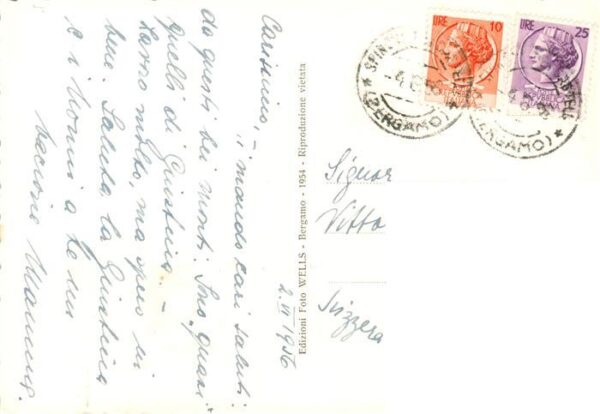 Carissimo,
mando cari saluti
da questi bei monti. Sono quasi
quelli di Giustina. -
Lavoro molto, ma spero
bene. Saluta la Giustina
e i nonni a te un
bacione Mamma.
2. VI 1956
Edizioni Foto WELLS - Bergamo - 1954 - Riproduzione vietata
LIRE 10
LIRE 25
(BERGAMO)
(BERGAMO)
Signor
Vitto
Svizzera